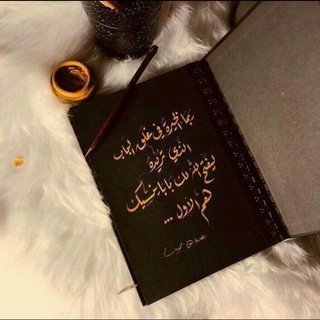 ربما الخيرة في غلق الباب
الذي تريده
ليفتح الله لك بابا ينسيك
هم الأول ...